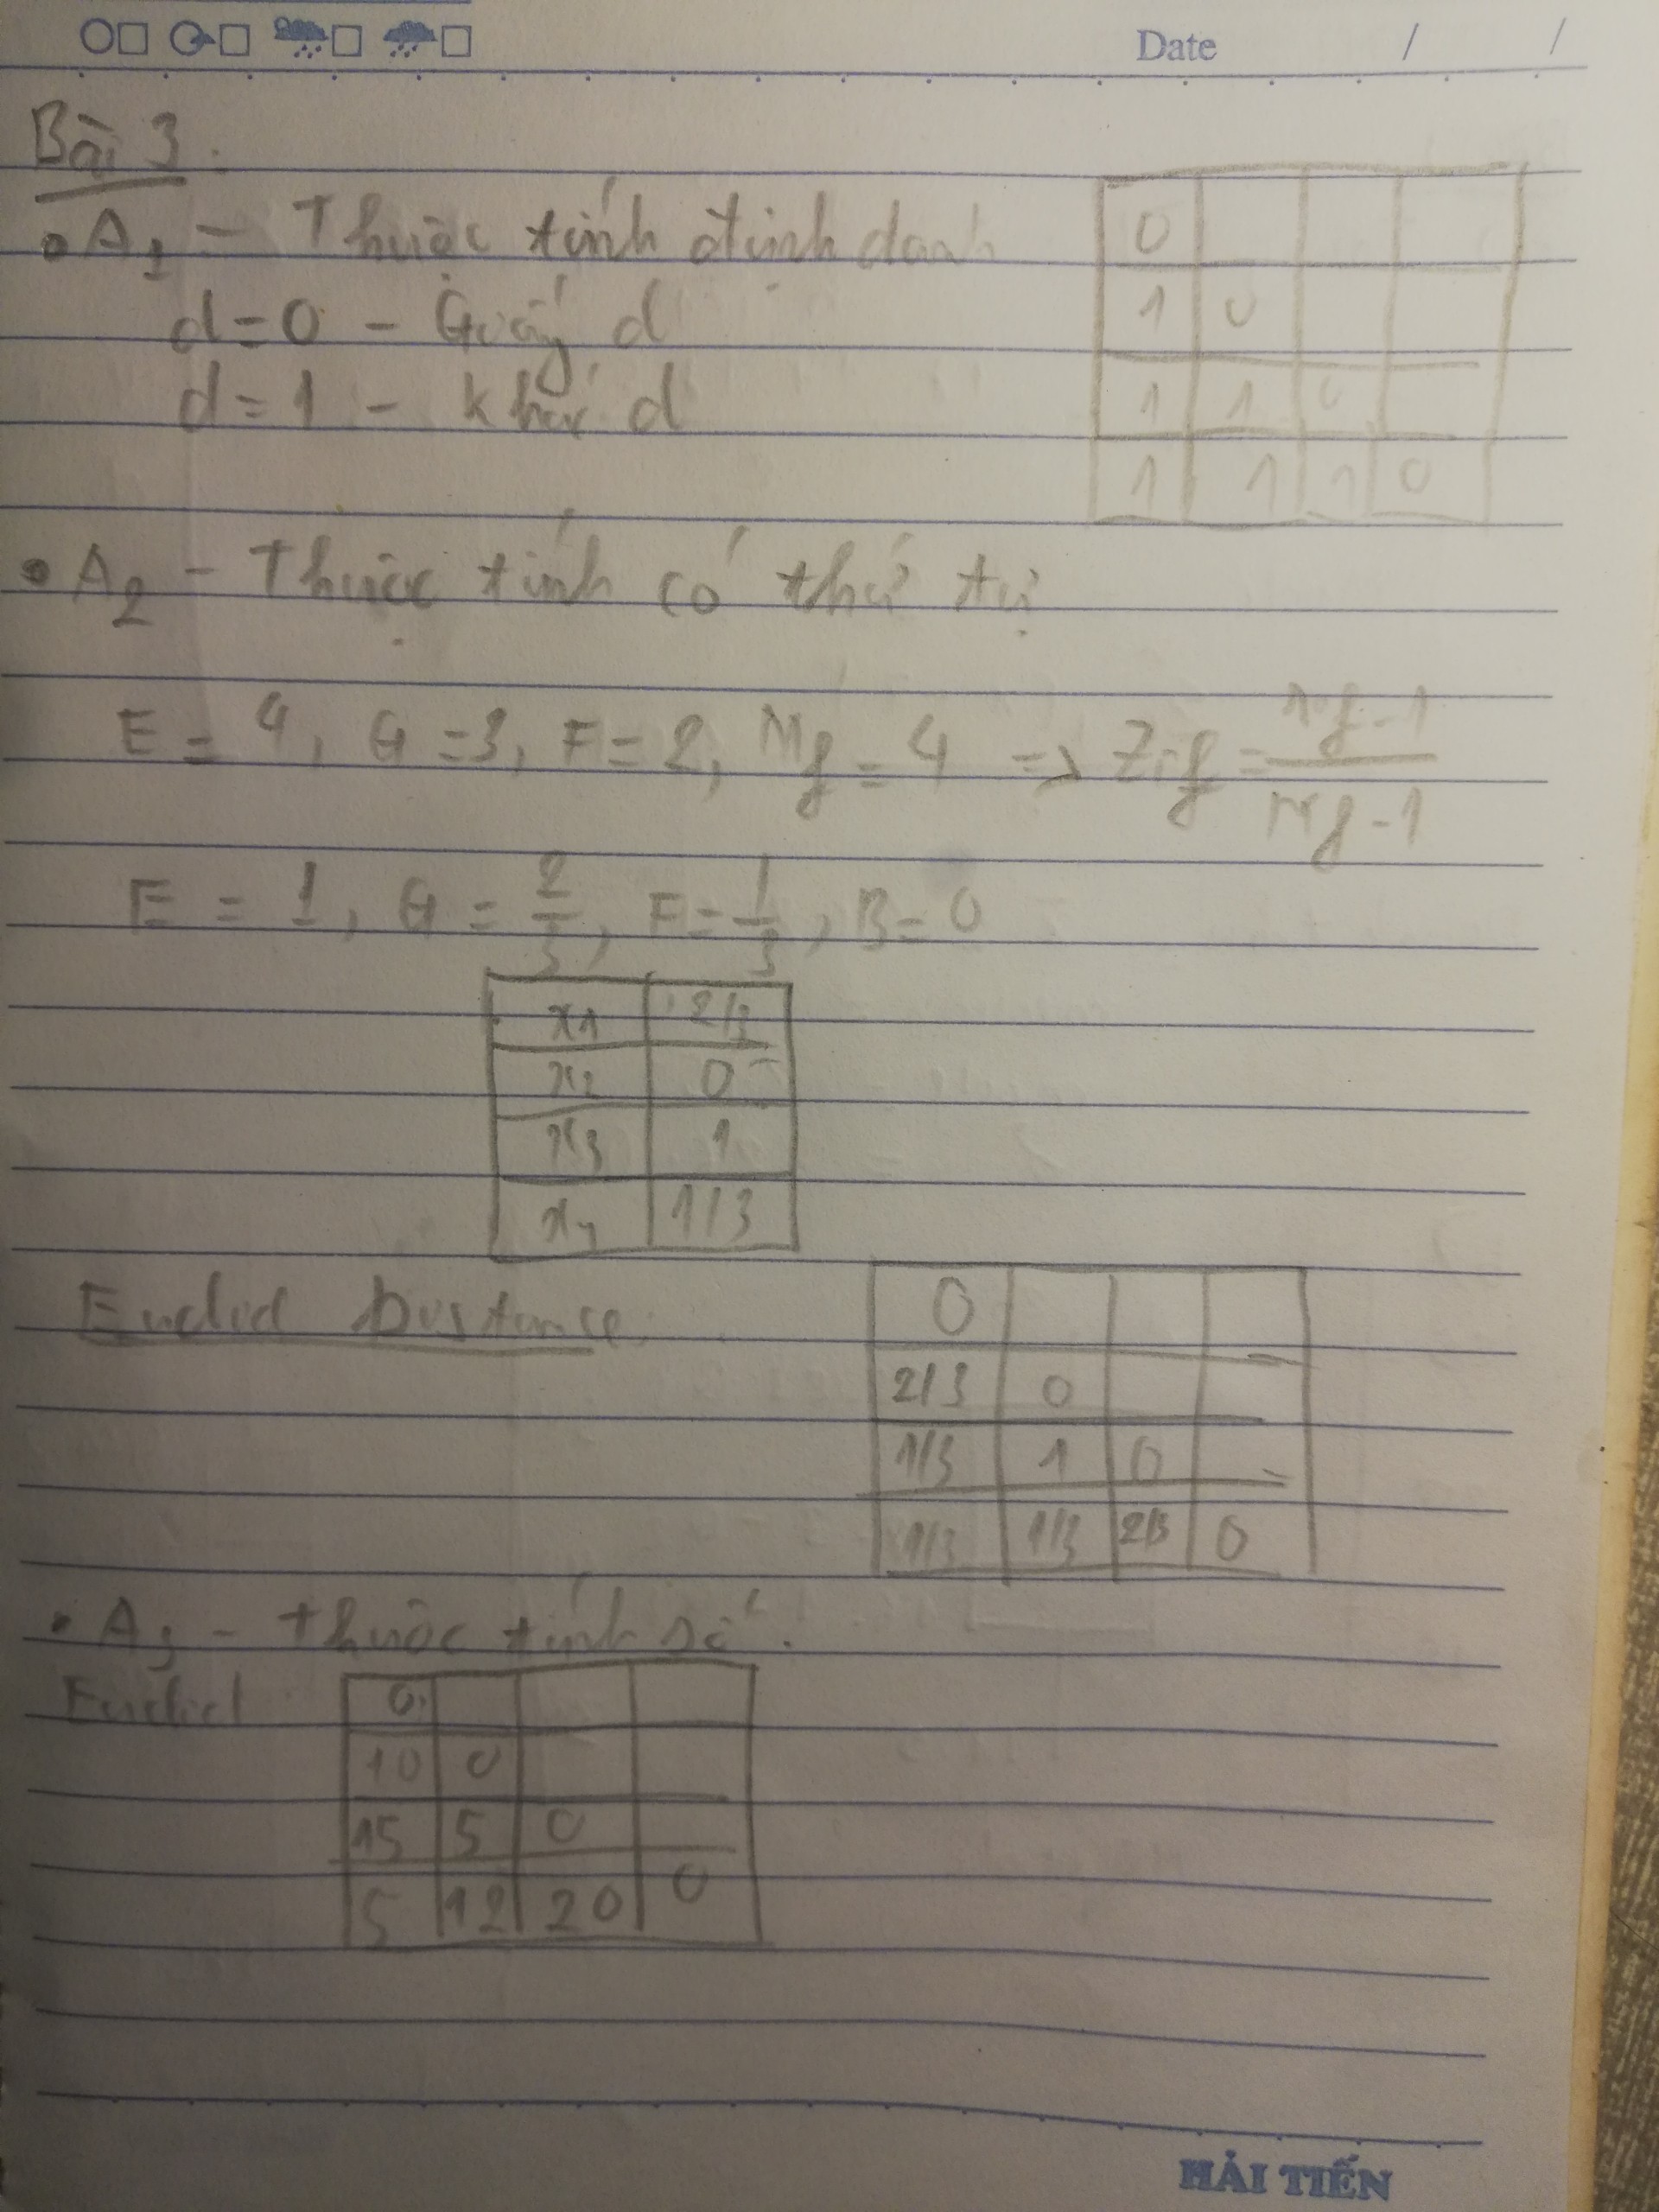 Date / /
Bài 3:
• A1 - Thuộc tính định danh
d=0 - Giống d
d=1 - khác d
0
1 0
1 1 0
1 1 1 0
• A2 - Thuộc tính có thứ tự
E = 4, G = 3, F = 2, Mf = 4 => Zif = rif-1 / Mf-1
E = 1, G = 2/3, F = 1/3, B = 0
x1 2/3
x2 0
x3 1
x4 1/3
Euclid Distance:
0
2/3 0
1/3 1 0
1/3 1/3 2/3 0
• A3 - thuộc tính số.
Euclid
0
10 0
15 5 0
5 12 20 0
HẢI TIẾN